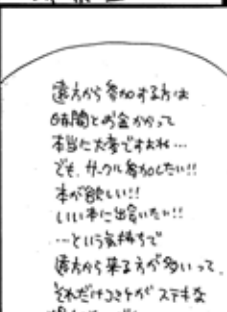 遠方から参加する方は
時間とお金かかって
本当に大変ですよね…
でも、サークル参加したい!!
本が欲しい!!
いい本に出会いたい!!
…という気持ちで
遠方から来る方が多いって、
それだけコミケがステキな